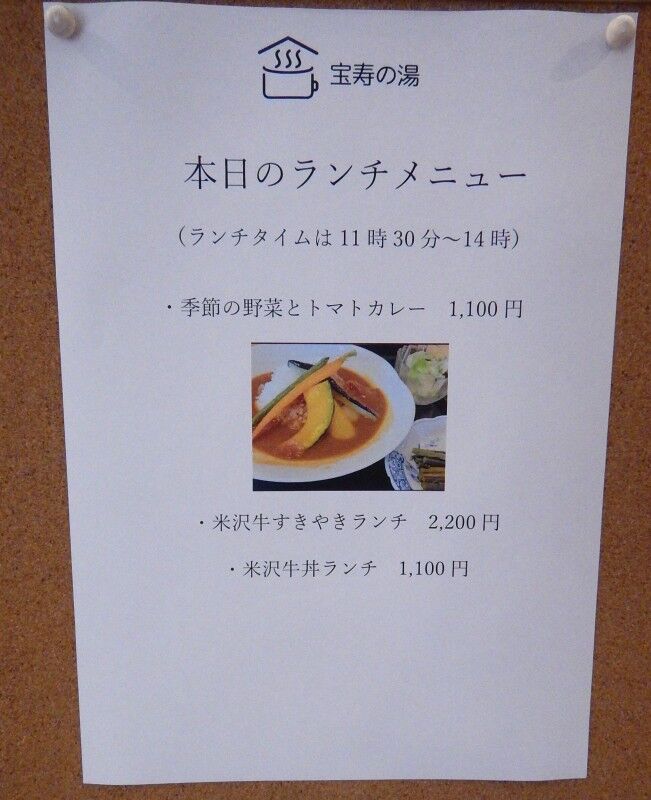 宝寿の湯
本日のランチメニュー
（ランチタイムは 11 時 30 分～14 時）
・季節の野菜とトマトカレー　1,100 円
・米沢牛すきやきランチ　2,200 円
・米沢牛丼ランチ　1,100 円